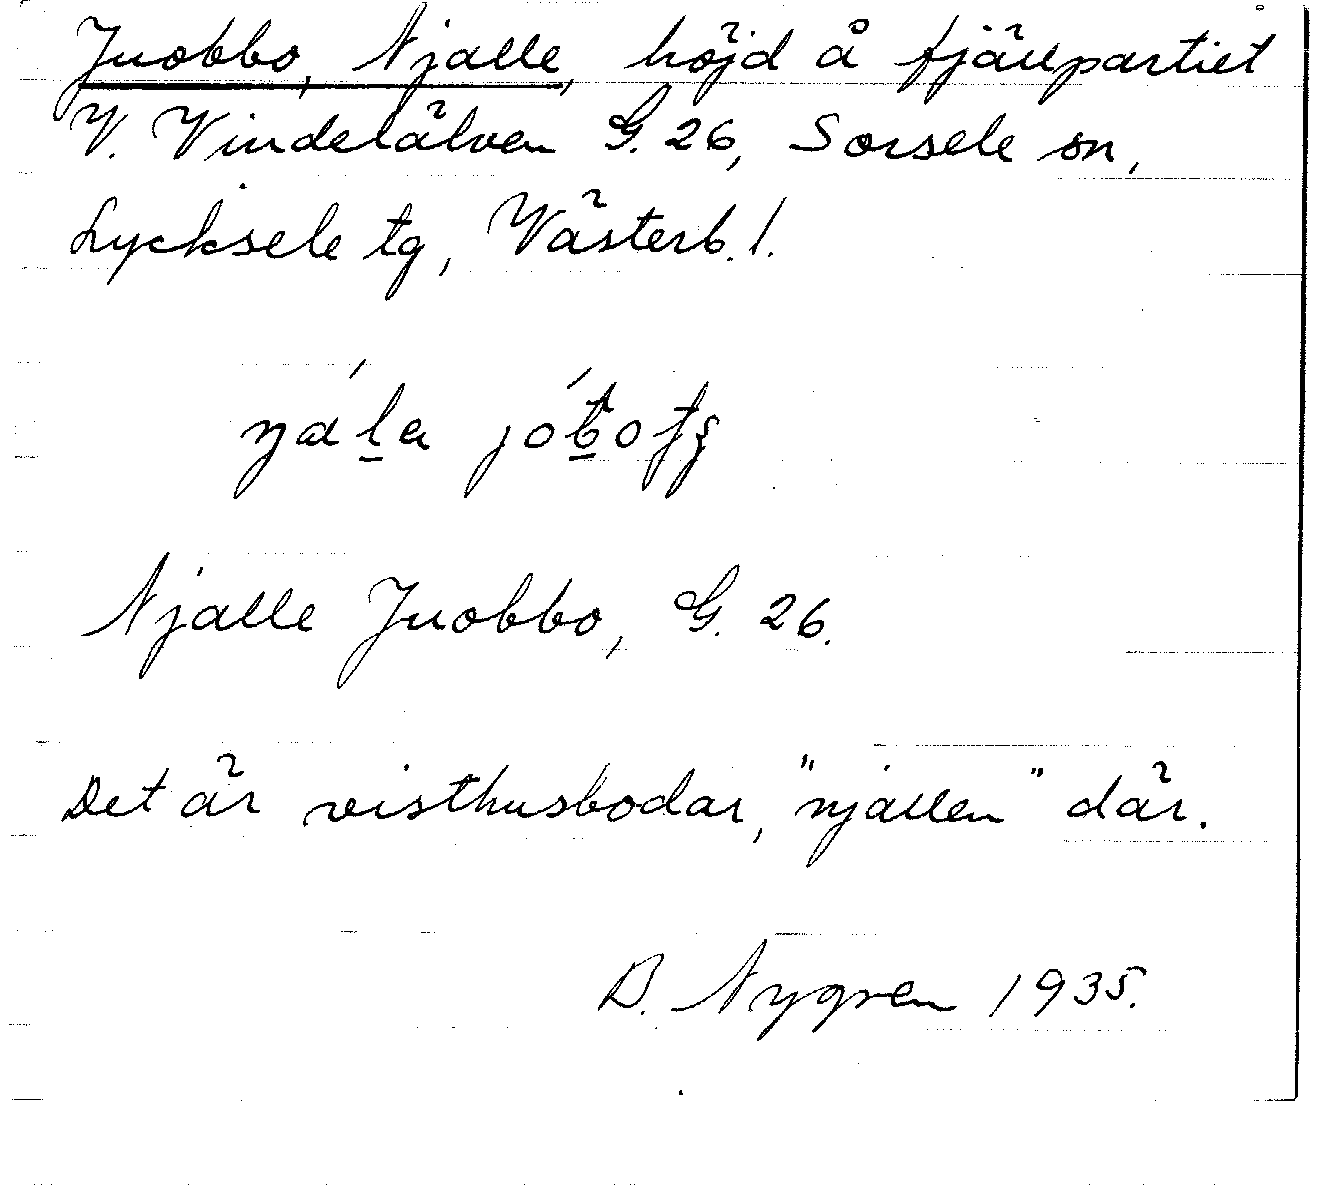 Juobbo, Njalle, höjd å fjällpartiet
V. Vindelälven G. 26, Sorsele sn,
Lycksele tg, Västerb. l.
Njalle Juobbo, G. 26.
Det är visthusbodar, "njallen" där.
B. Nygren 1935.